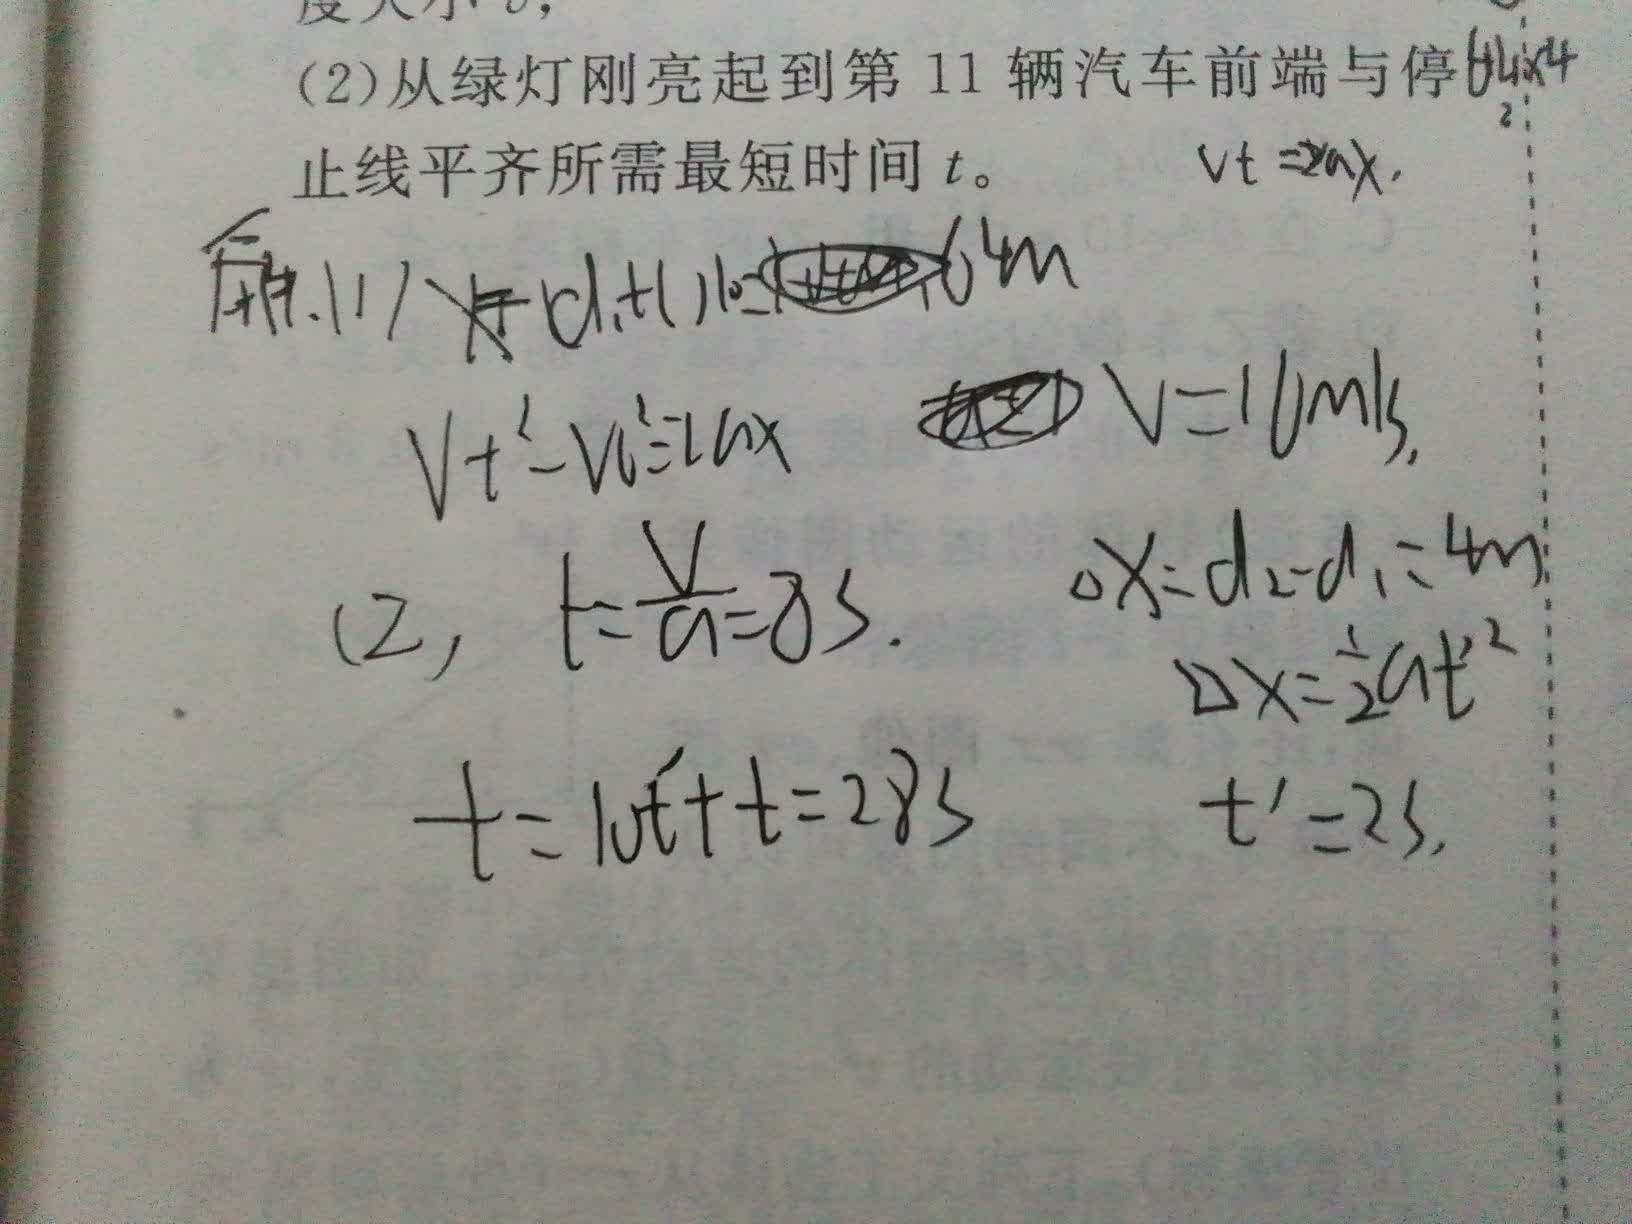 度大小 v;
(2)从绿灯刚亮起到第 11 辆汽车前端与停
止线平齐所需最短时间 t。
64×4
2
Vt =2ax.
解.(1)
64m
Vt²-V0²=2ax
V=16m/s.
(2) t=V/a=8s.
△x=d₂-d₁=4m
△x=½at'²
t=10t'+t=28s
t'=2s.